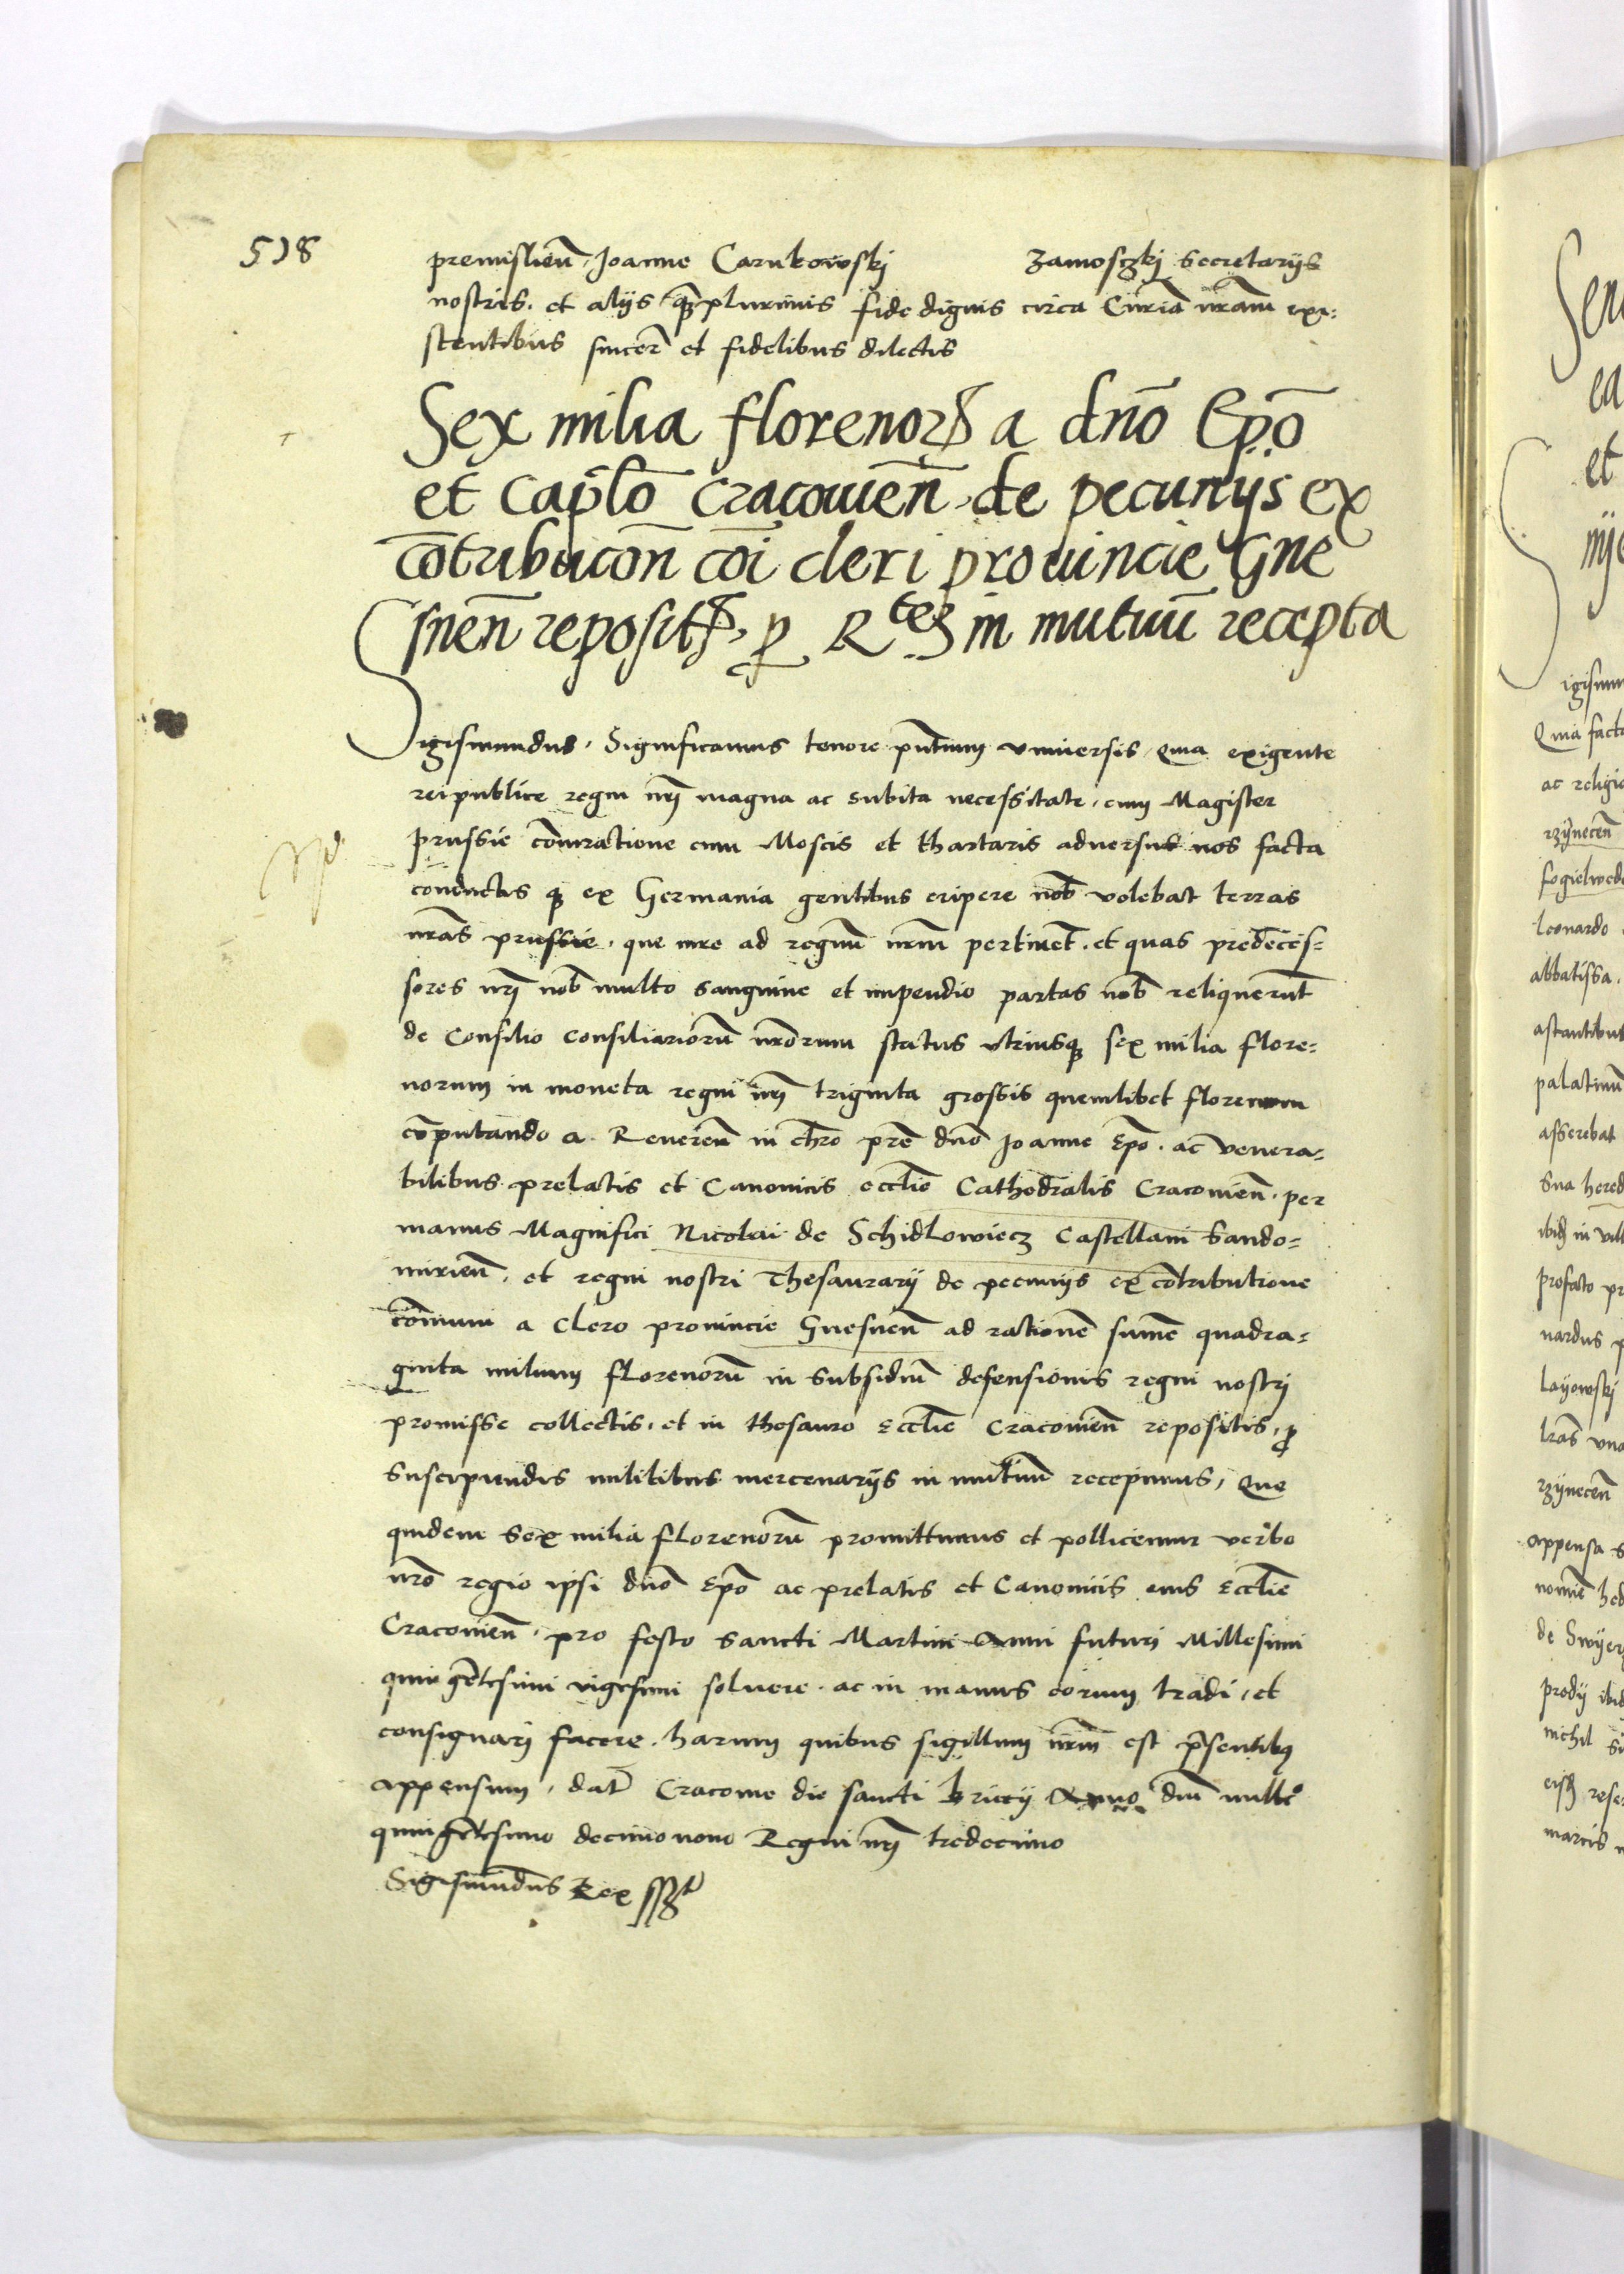 518
premislien̄, Joanne Carnkowskj Zamosczkj Secretarijs
nostris. et alijs q̄ꝫplurimis fide dignis circa Curiā nr̄am exi:
stentibus sincer̄ et fidelibus dilectis
Sex milia florenoꝝ a dn̄o Ep̄o
et Cap̄lo Cracouien̄, de pecunijs ex
cōtribucōn cōi cleri prouincie Gne
snen̄ reposit̄, ꝑ R tem in mutuū recepta
Sigismundus, Significamus tenore pn̄tium vniuersis, Quia exigente
reipublice regni nrj̄ magna ac subita necessitate, cum Magister
prussie con̄iuractione cum Moscis et thartaris aduersus nos facta
conductis qꝫ ex Germania gentibus eripere nob̄ volebat terras
nr̄as prussie, que iure ad regnū nrm̄ pertinet̄. et quas predeces=
sores nrj̄ nob̄ multo sanguine et impendio partas nob̄ reliquerūt
de Consilio Consiliariorū nr̄orum status vtriusqꝫ sex milia flore=
norum in moneta regni nrj̄ triginta grossis quemlibet florenum
cōputando a Reueren̄ in chr̄o pr̄e dn̄o Joanne Ep̄o. ac venera=
bilibus prelatis et Canonicis ecclīe Cathedralis Cracouien̄. per
manus Magnifici Nicolai de Schidlowiecz Castellani Sando=
mirien̄, et regni nostri Thesaurarij de pecunijs ex cōtributione
cōmuni a Clero prouincie Gnesnen̄ ad rationē sum̄e quadra=
ginta milium florenorū in subsidiū defensionis regni nostrj
promisse collectis, et in thesauro Ecclīe Cracouien̄ repositis, ꝓ
suscipiendis militibus mercenarijs in mutuū recepimus, Que
quidem Sex milia florenorū promittimus et pollicemur verbo
nr̄o regio ipsi dn̄o Ep̄o ac prelatis et Canonicis eius Ecclīe
Cracouien̄, pro festo Sancti Martini Anni futuri Millesimi
quingēntesimi vigesimi soluere. ac in manus eorum tradi, et
consignarj facere. harum quibus sigillum nrm̄ est p̄sentibꝰ
appensum, dat̄ Cracouie die sancti Briccij Anno dnī mille°
quingētesimo decimonono Regni nrj̄ tredecimo
Sigismūdus Rex sszt